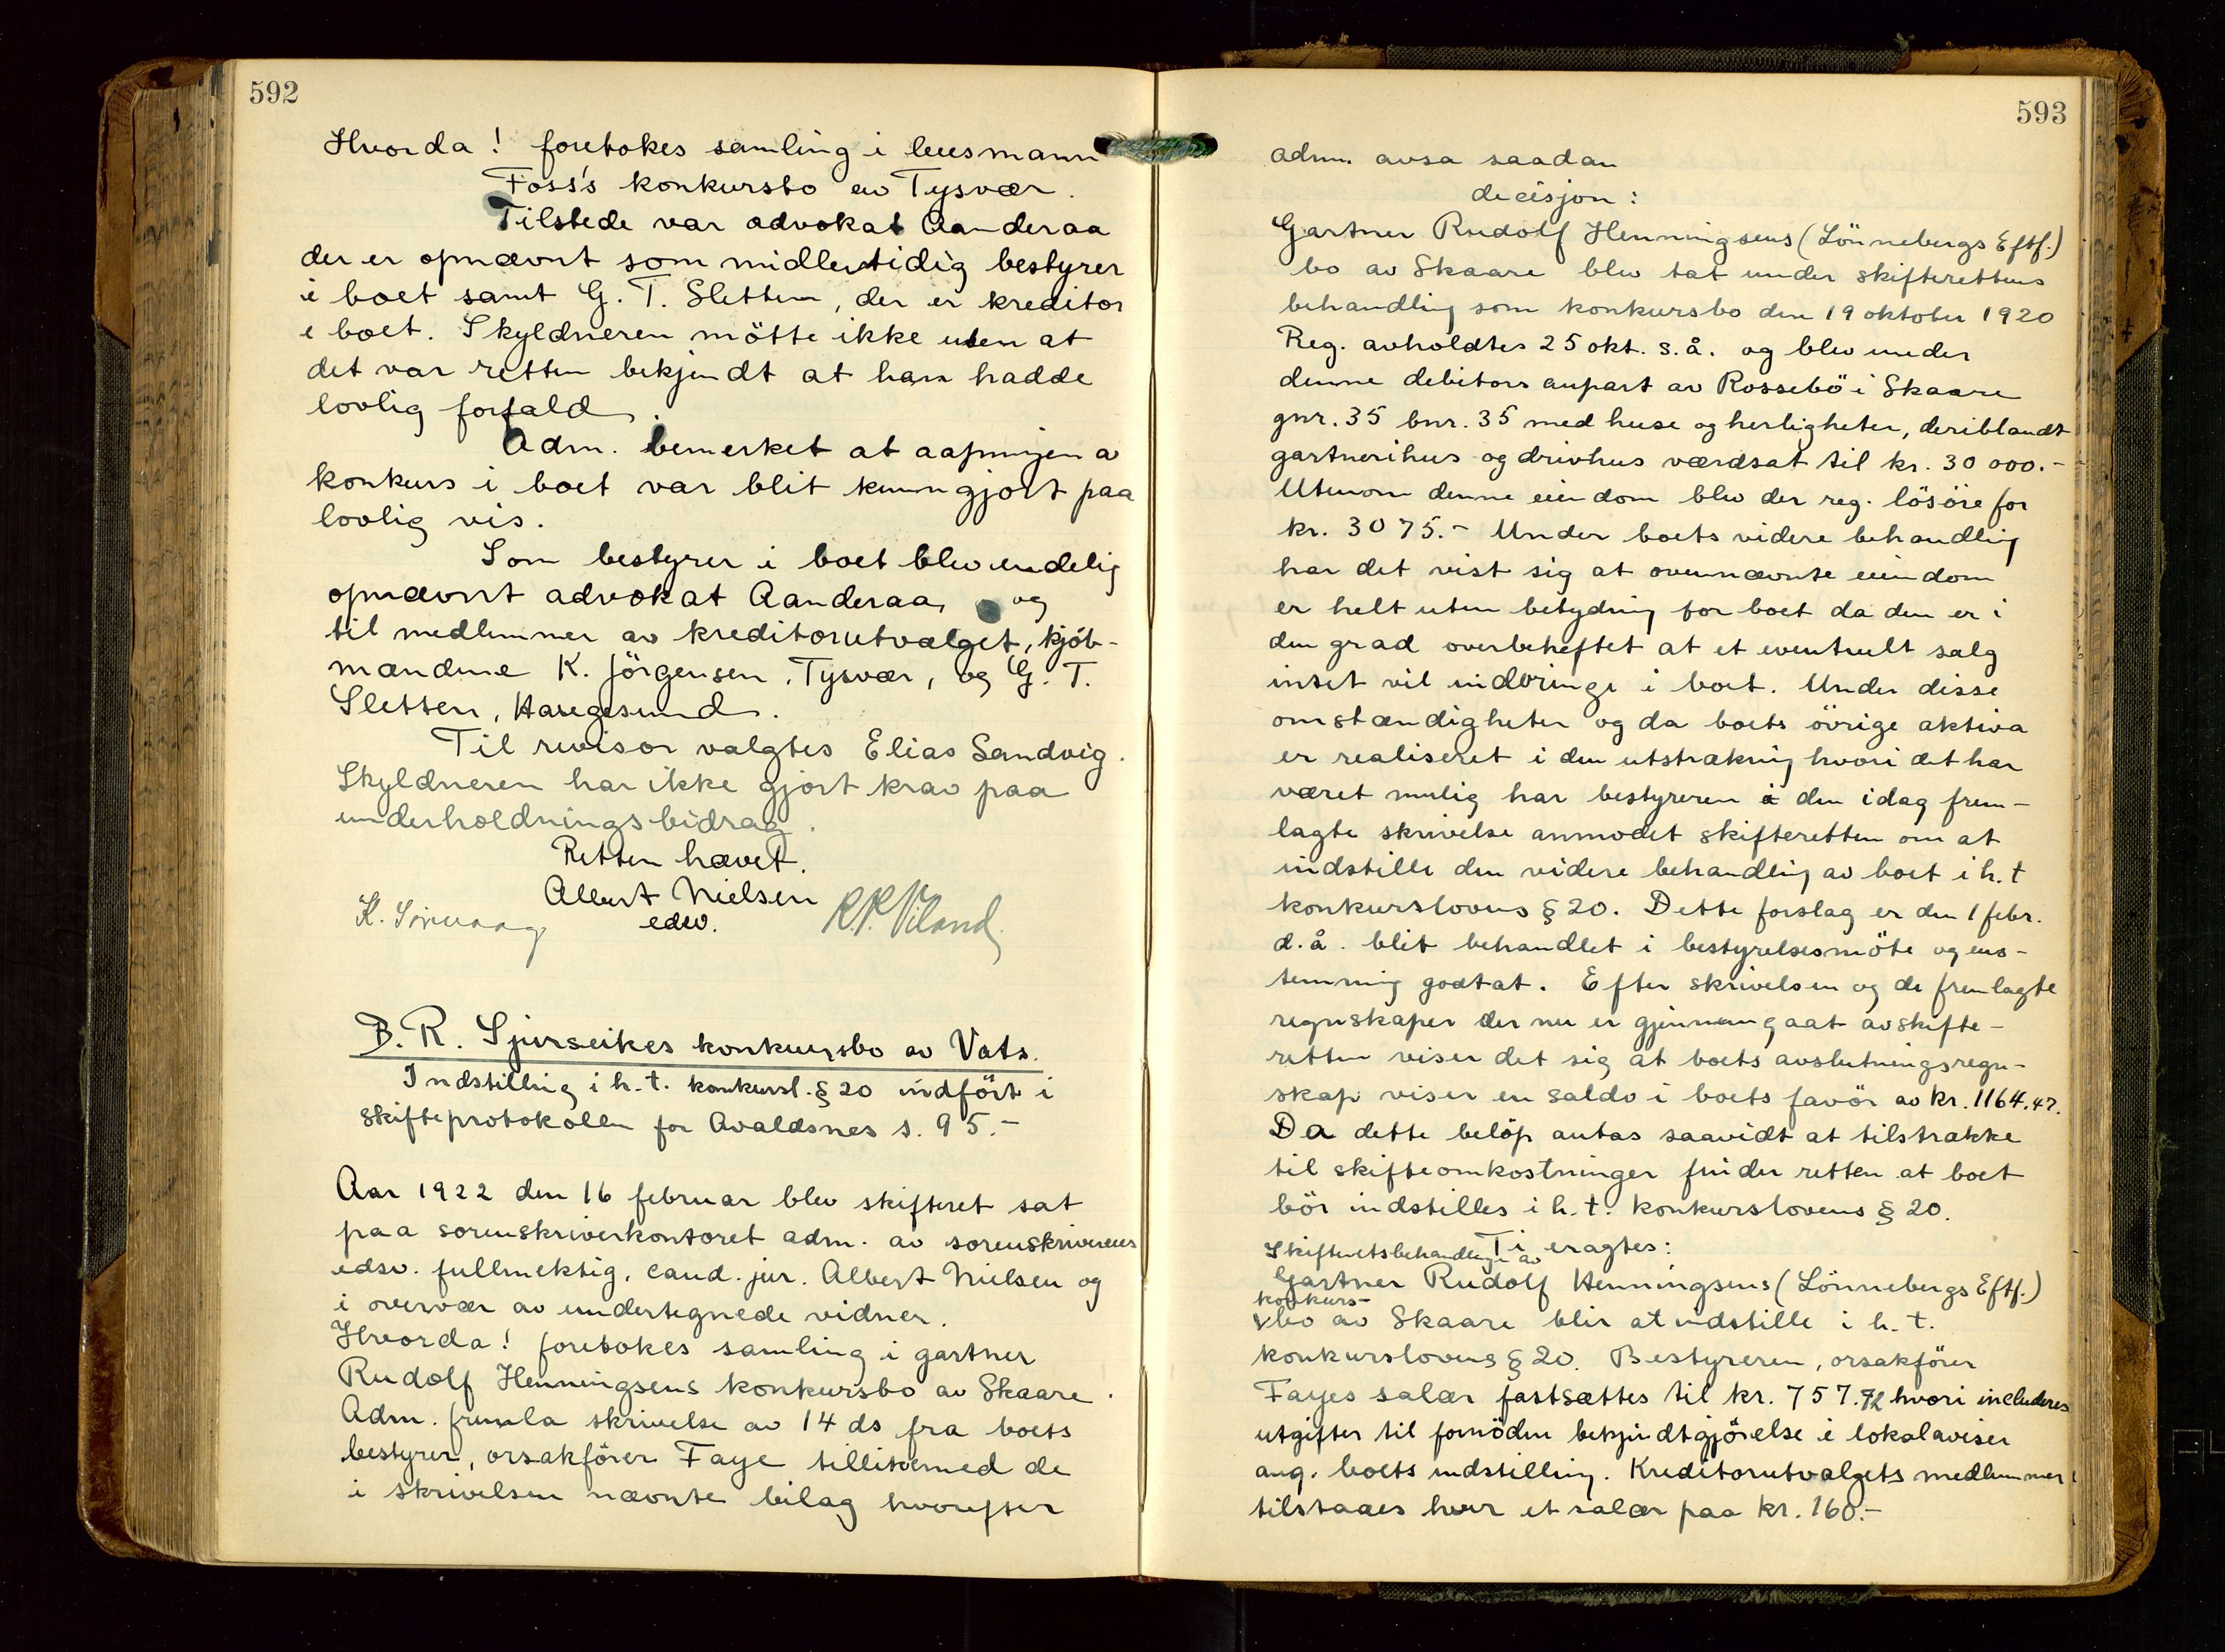 592
Hvorda! foretokes samling i lensmann
Foss's konkursbo av Tysvær.
Tilstede var advokat Aanderaa
der er opnævnt som midlertidig bestyrer
i boet samt G. T. Sletten, der er kreditor
i boet. Skyldneren mötte ikke uten at
det var retten bekjendt at han hadde
lovlig forfald.
Adm. bemerket at aapningen av
konkurs i boet var blit kunngjort paa
lovlig vis.
Som bestyrer i boet blev endelig
opnævnt advokat Aanderaa, og
til medlemmer av kreditorutvalget, kjöb-
mændene K. Jörgensen, Tysvær, og G. T.
Sletten, Haugesund.
Til revisor valgtes Elias Sandvig.
Skyldneren har ikke gjort krav paa
underholdningsbidrag.
Retten hævet.
Albert Nielsen
edsv.
K. R.P. Viland
B. R. Sjurseikes konkursbo av Vats.
Indstilling i h.t. konkursl. § 20 indfört i
skifteprotokollen for Avaldsnes s. 95.-
Aar 1922 den 16 februar blev skifteret sat
paa sorenskriverkontoret adm. av sorenskriverens
edsv. fullmektig, cand. jur. Albert Nielsen og
i overvær av undertegnede vidner.
Hvorda! foretokes samling i gartner
Rudolf Henningsens konkursbo av Skaare.
Adm. fremla skrivelse av 14 ds fra boets
bestyrer, orsakförer Faye tillikemed de
i skrivelsen nævnte bilag hvorefter
593
adm. avsa saadan
decisjon:
Gartner Rudolf Henningsens (Lönnebergs Eftf.)
bo av Skaare blev tat under skifterettens
behandling som konkursbo den 19 oktober 1920
Reg. avholdtes 25 okt. s.å. og blev under
denne debitors anpart av Rossebö i Skaare
gnr. 35 bnr. 35 med huse og herligheter, deriblandt
gartnerihus og drivhus værdsat til kr. 30 000.-
Utenom denne eiendom blev der reg. lösöre for
kr. 3075.- Under boets videre behandling
har det vist sig at ovennævnte eiendom
er helt uten betydning for boet da den er i
den grad overbeheftet at et eventuelt salg
intet vil indbringe i boet. Under disse
omstændigheter og da boets övrige aktiva
er realiseret i den utstrækning hvori det har
været mulig har bestyreren i den idag frem-
lagte skrivelse anmodet skifteretten om at
indstille den videre behandling av boet i h.t
konkurslovens § 20. Dette forslag er den 1 febr.
d.å. blit behandlet i bestyrelsesmöte og ens-
temmig godtat. Efter skrivelsen og de fremlagte
regnskaper der nu er gjennemgaat av skifte-
retten viser det sig at boets avslutningsregn-
skap viser en saldo i boets favör av kr. 1164.47.
Da dette belöp antas saavidt at tilstrække
til skifteomkostninger finder retten at boet
bör indstilles i h.t. konkurslovens § 20.
Ti eragtes:
Skifteretsbehandlingen av
Gartner Rudolf Henningsens (Lönnebergs Eftf.)
konkurs-
bo av Skaare blir at indstille i h.t.
konkurslovens § 20. Bestyreren, orsakförer
Fayes salær fastsættes til kr. 757.72 hvori includeres
utgifter til fornöden bekjendtgjörelse i lokalaviser
ang. boets indstilling. Kreditorutvalgets medlemmer
tilstaaes hver et salær paa kr. 160.-